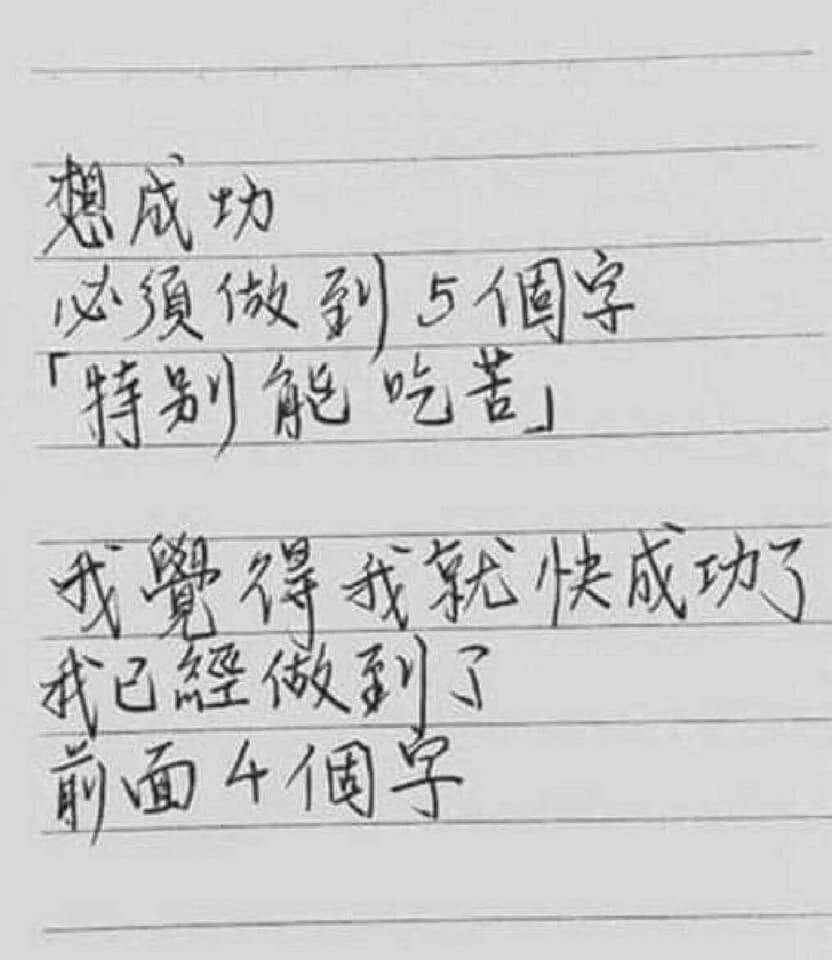 想成功
必須做到5個字
「特別能吃苦」
我覺得我就快成功了
我已經做到了
前面4個字